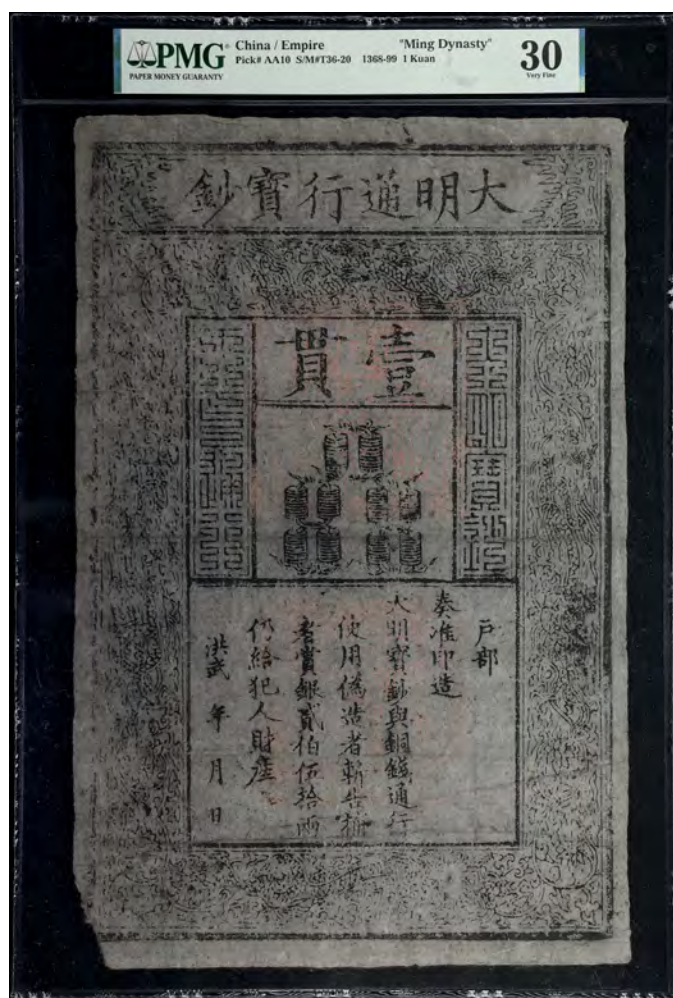 PMG
PAPER MONEY GUARANTY
China / Empire "Ming Dynasty"
Pick# AA10 S/M#T36-20 1368-99 1 Kuan
30
Very Fine
大明通行寶鈔
壹貫
大明寶鈔
天下通行
戶部
奏准印造
大明寶鈔與銅錢通行
使用偽造者斬告捕
者賞銀貳伯伍拾兩
仍給犯人財產
洪武 年 月 日